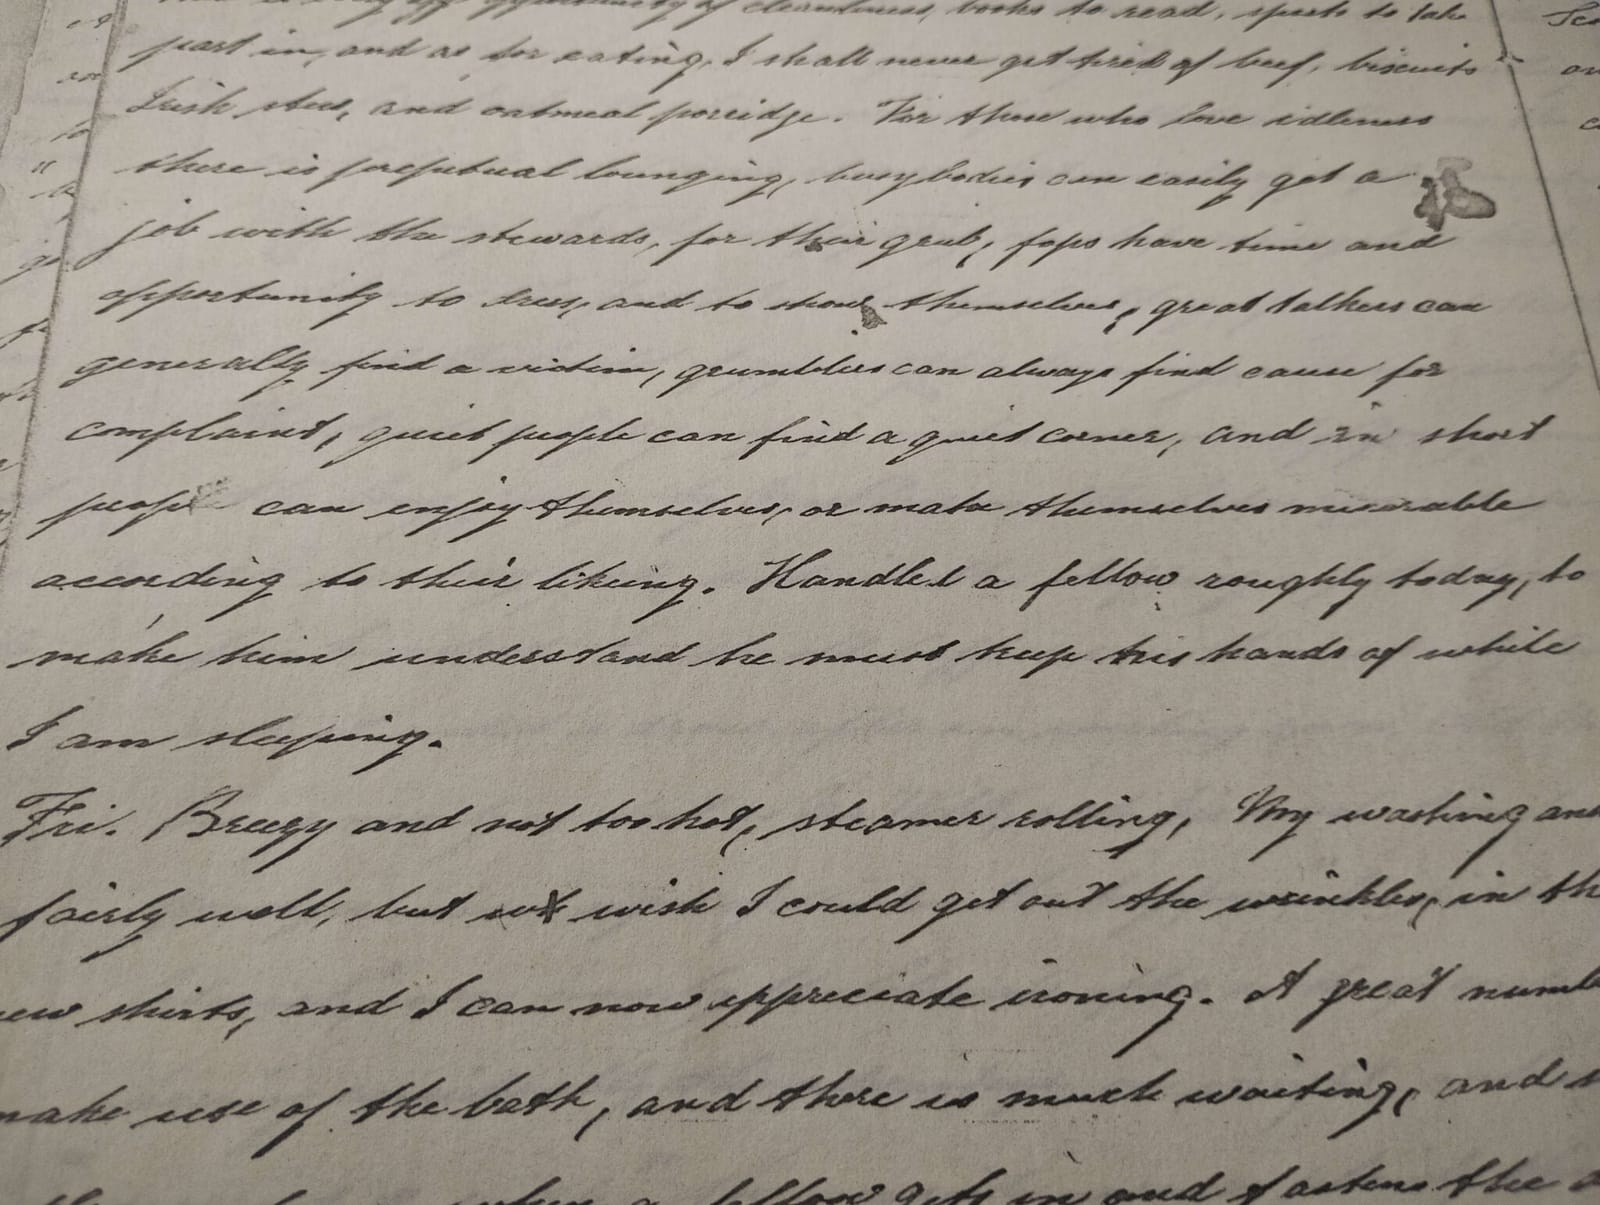 opportunity of cleanliness, books to read, sports to take
part in, and as for eating, I shall never get tired of beef, biscuits
Irish stew, and oatmeal porridge. For those who love idleness
there is perpetual lounging, busybodies can easily get a
job with the stewards, for their grub, fops have time and
opportunity to dress, and to show themselves, great talkers can
generally find a victim, grumblers can always find cause for
complaint, quiet people can find a quiet corner, and in short
peopl can enjoy themselves, or make themselves miserable
according to their liking. Handled a fellow roughly today, to
make him understand he must keep his hands of while
I am sleeping.
Fri. Breezy and not too hot, steamer rolling, My washing
fairly well, but wish I could get out the wrinkles, in th
ew shirts, and I can now appreciate ironing. A great numb
make use of the bath, and there is much waiting, and
when a fellow gets in and fastens the